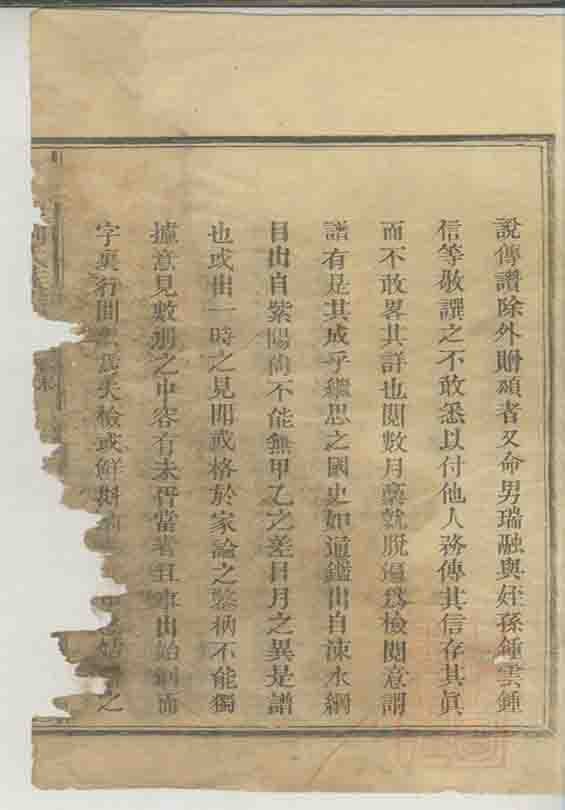 說傳讚除外贈頌者又命男瑞融與姪孫鍾雲鍾
信等敬譔之不敢悉以付他人務傳其信存其眞
而不敢畧其詳也閱數月藁就脫逼爲檢閱意謂
譜有是其成乎繼思之國史如通鑑出自涑水綱
目由自紫陽尚不能無甲乙之差日月之異是譜
也或由一時之見聞或格於家論之鑿枘不能獨
據意見數刪之中容有未胥當者且事出始創而
字裏行間爲失檢或鮮斟之